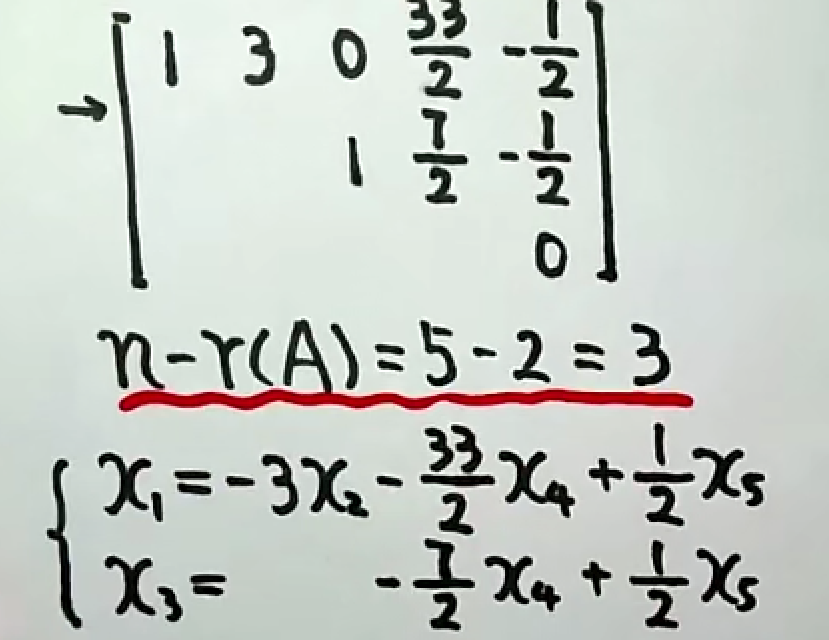 → [ 1 3 0 33/2 -1/2
1 7/2 -1/2
0 ]
n-r(A)=5-2=3
{ x₁=-3x₂-33/2x₄+1/2x₅
x₃= -7/2x₄+1/2x₅